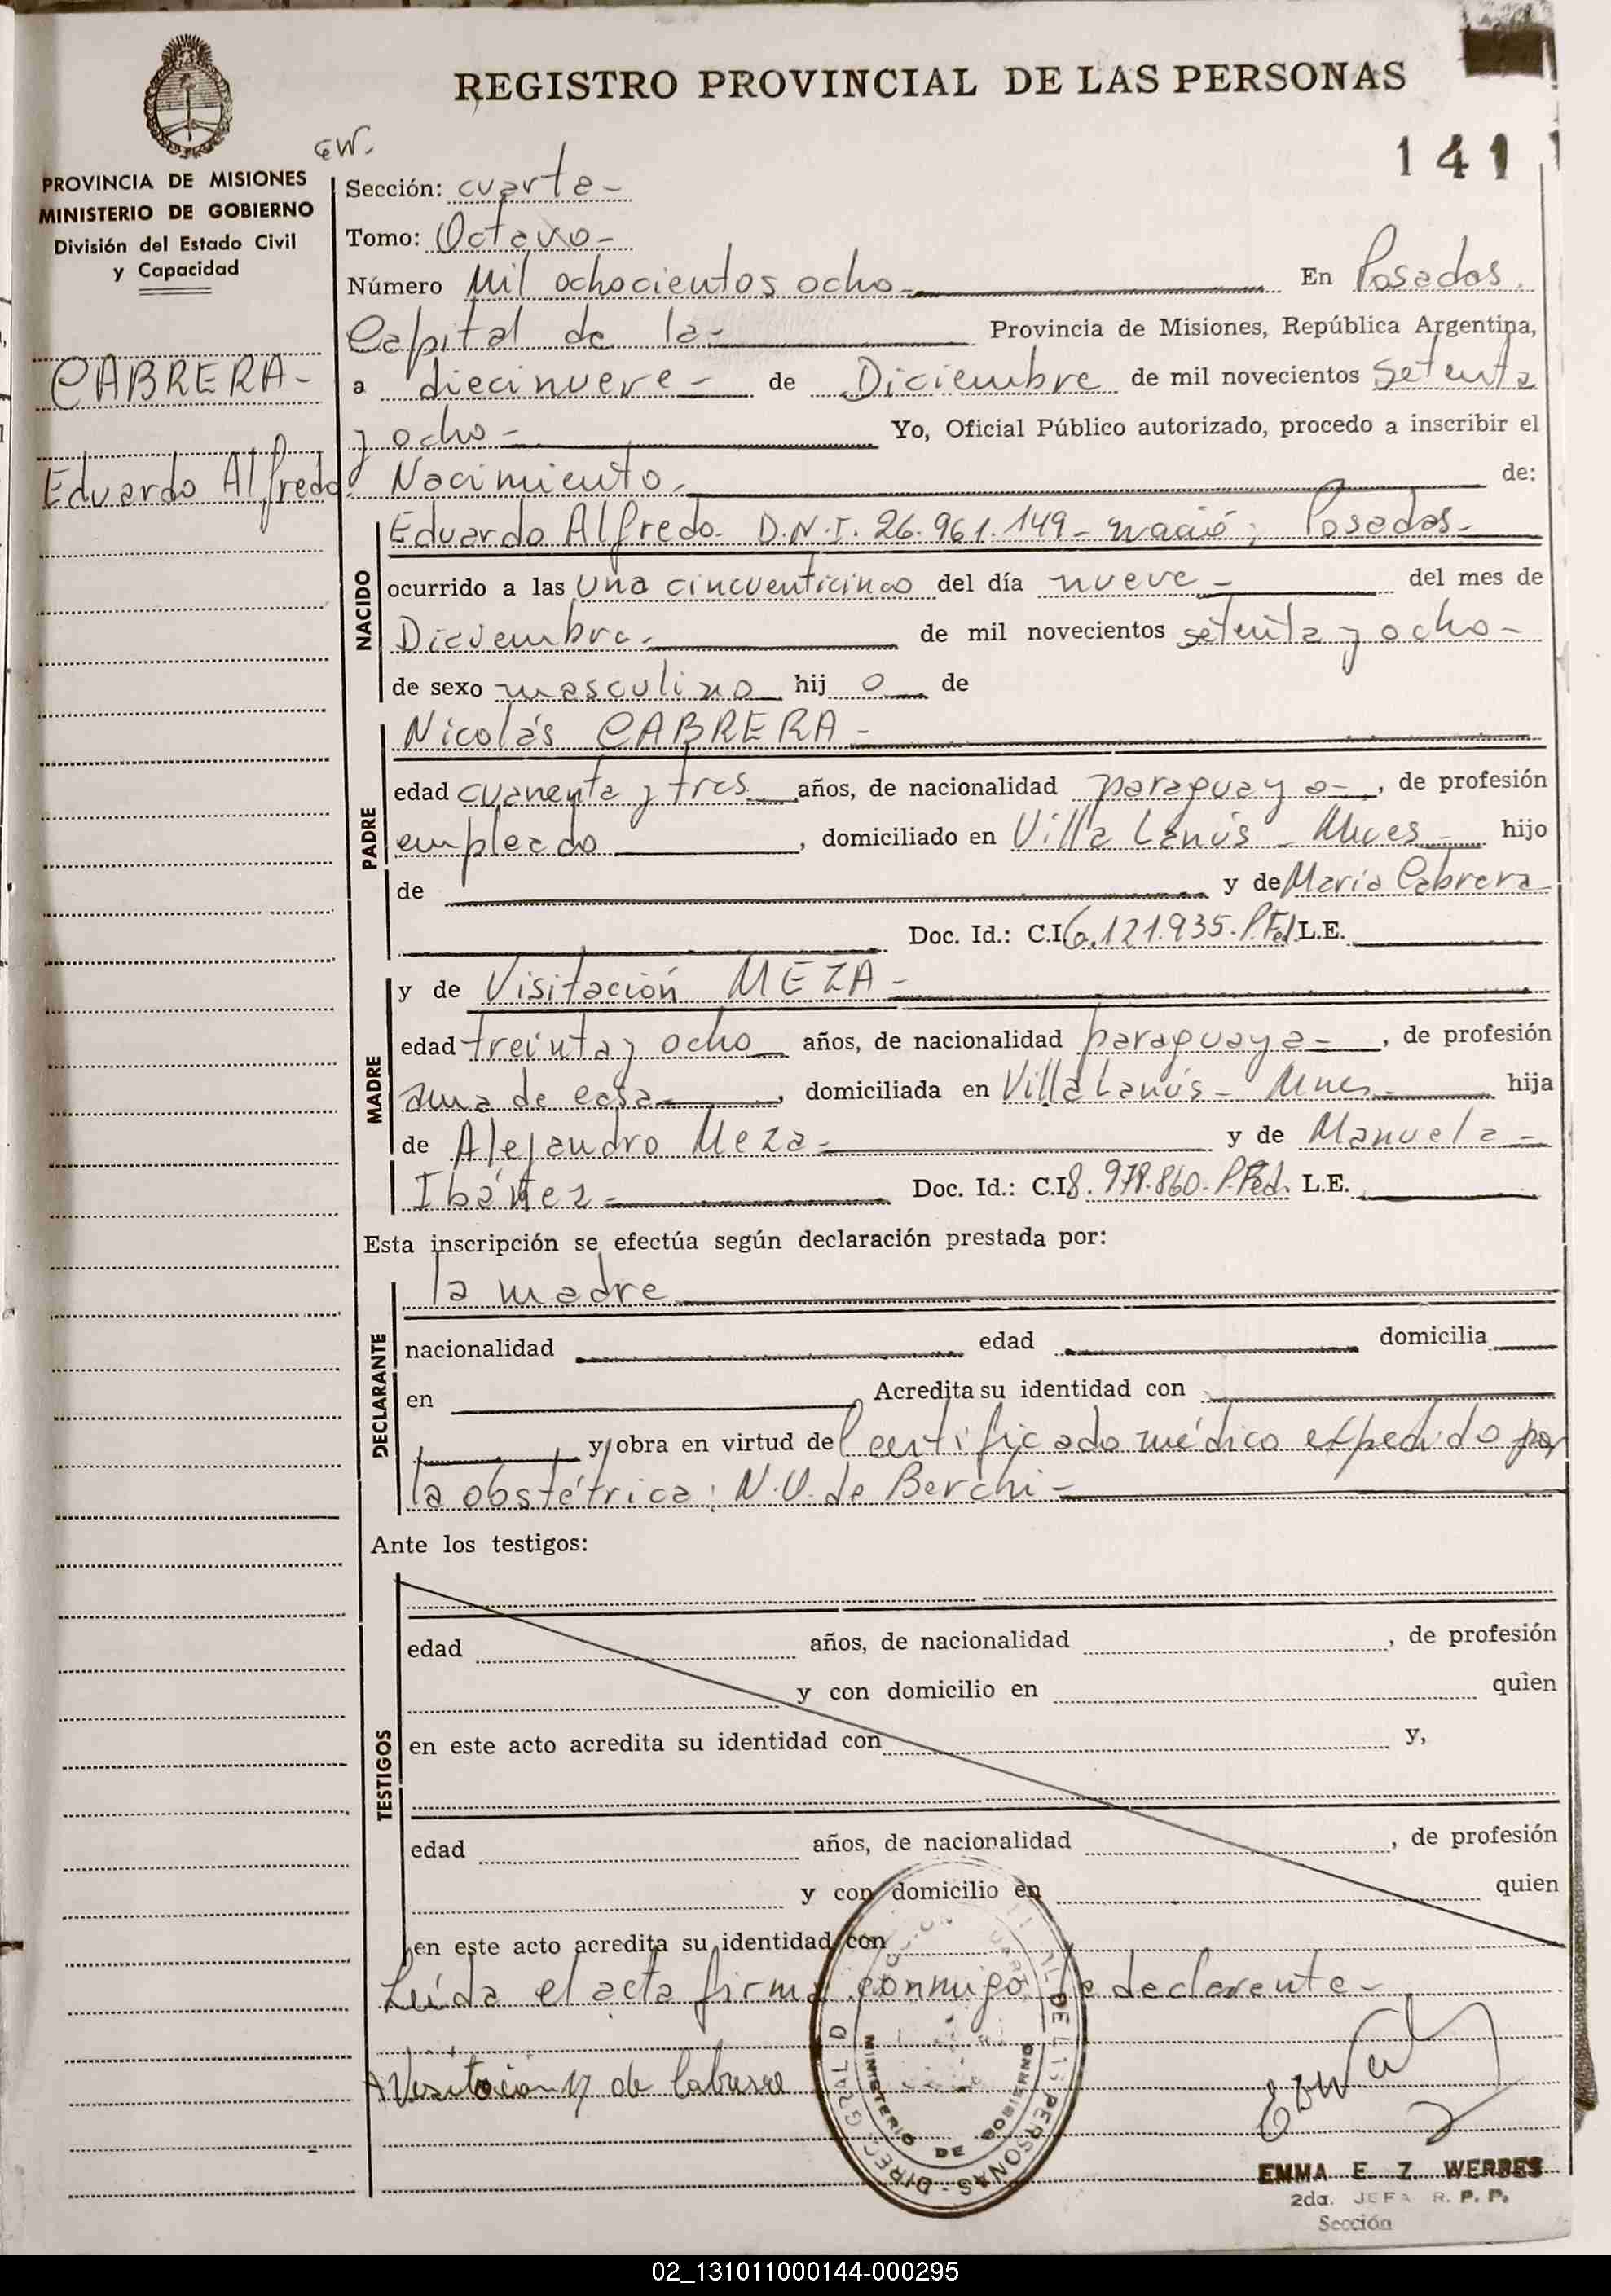 REGISTRO PROVINCIAL DE LAS PERSONAS
141
EW.
PROVINCIA DE MISIONES
MINISTERIO DE GOBIERNO
División del Estado Civil
y Capacidad
CABRERA-
Eduardo Alfredo.
Sección: cuarta-
Tomo: Octavo-
Número Mil ochocientos ocho- En Posadas,
Capital de la- Provincia de Misiones, República Argentina,
a diecinueve- de Diciembre de mil novecientos setenta
y ocho- Yo, Oficial Público autorizado, procedo a inscribir el
Nacimiento. de:
NACIDO
Eduardo Alfredo- D.N.I. 26.961.149- nació; Posadas-
ocurrido a las una cincuenticinco del día nueve- del mes de
Diciembre- de mil novecientos setenta y ocho-
de sexo masculino hij o de
PADRE
Nicolás CABRERA-
edad cuarenta y tres años, de nacionalidad paraguaya-, de profesión
empleado, domiciliado en Villa Lanús- Mnes- hijo
de y de María Cabrera
Doc. Id.: C.I. 6.121.935. P.Fed L.E.
MADRE
y de Visitación MEZA-
edad treinta y ocho años, de nacionalidad paraguaya-, de profesión
ama de casa-, domiciliada en Villa Lanús- Mnes- hija
de Alejandro Meza- y de Manuela-
Ibáñez- Doc. Id.: C.I. 8.978.860- P.Fed. L.E.
Esta inscripción se efectúa según declaración prestada por:
DECLARANTE
la madre
nacionalidad edad domicilia
en Acredita su identidad con
y obra en virtud del certificado médico expedido por
la obstétrica; N.U. de Berchi-
Ante los testigos:
TESTIGOS
edad años, de nacionalidad , de profesión
y con domicilio en quien
en este acto acredita su identidad con y,
edad años, de nacionalidad , de profesión
y con domicilio en quien
en este acto acredita su identidad con
Leída el acta firma conmigo la declarente-
Visitación M de Cabrera
DIREC. GRAL D DE LAS PERSONAS
MINISTERIO DE GOBIERNO
EMMA E. Z. WERBES
2da. JEFA R. P. P.
Sección
02_131011000144-000295